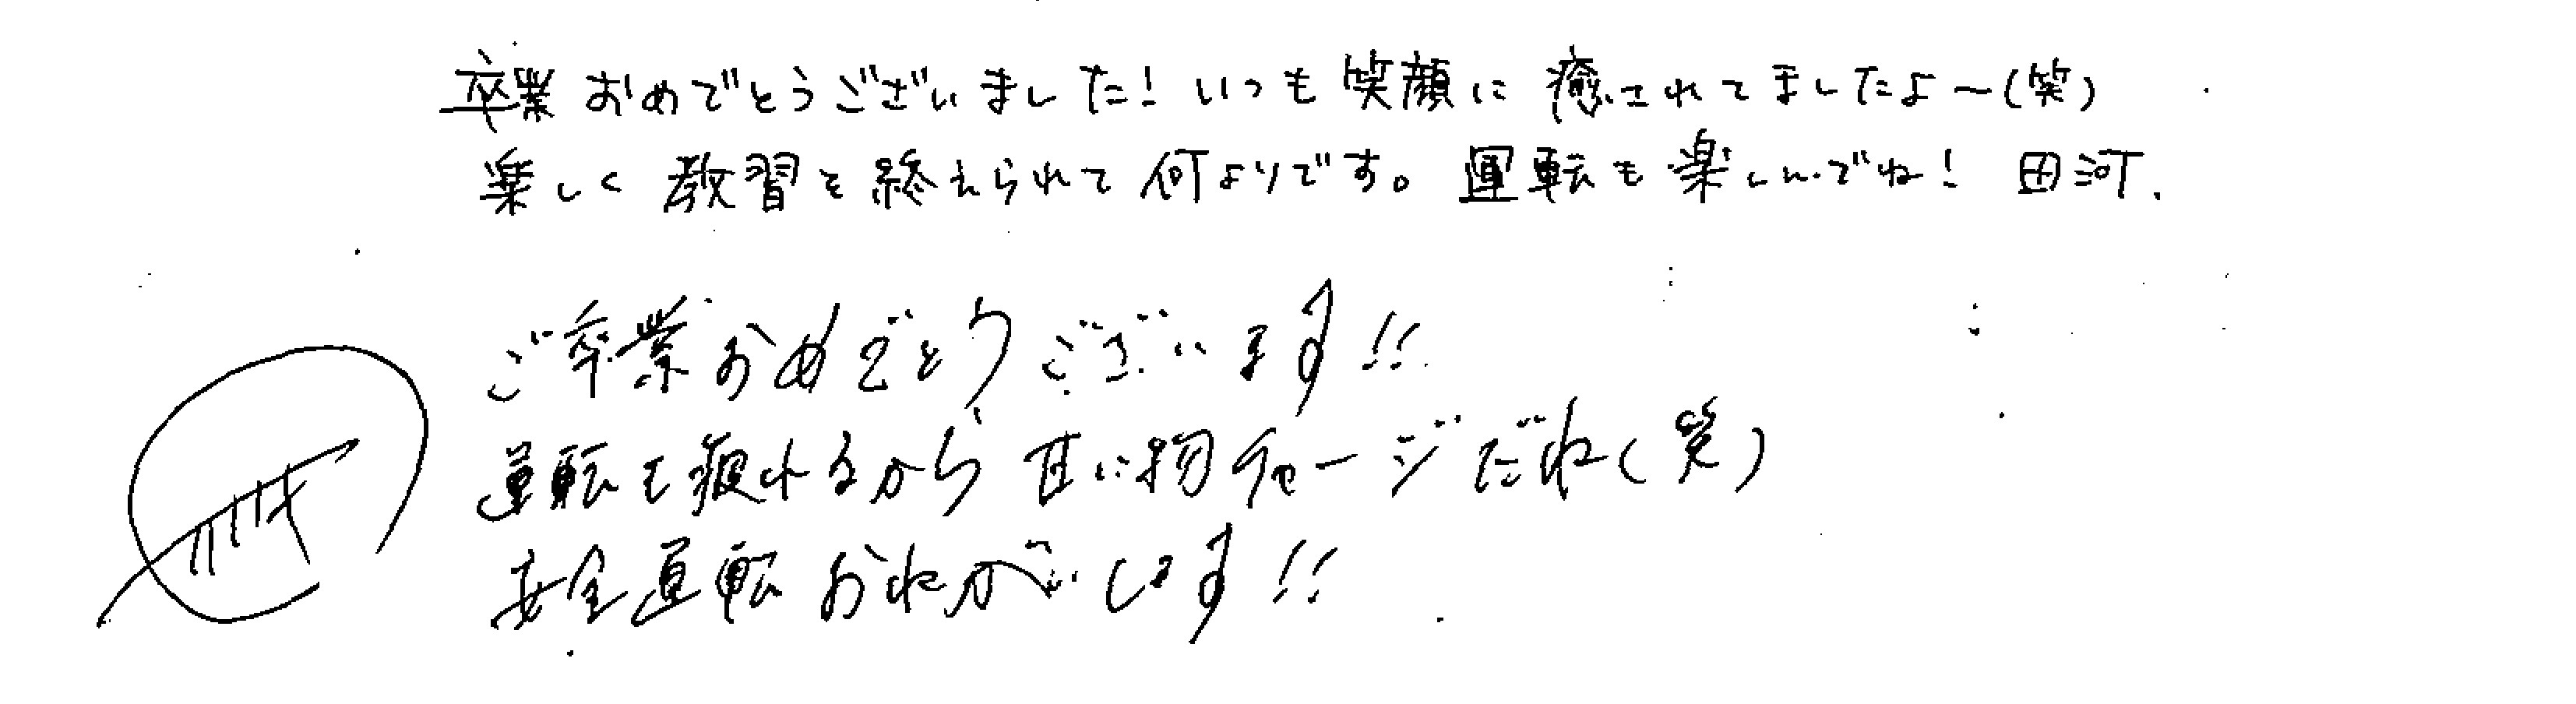 卒業おめでとうございました！いつも笑顔に癒されてましたよ～(笑)
楽しく教習を終えられて何よりです。運転も楽しんでね！ 田河.
ご卒業おめでとうございます!!
運転も疲れるから甘い物チャージだね(笑)
安全運転おねがいします!!